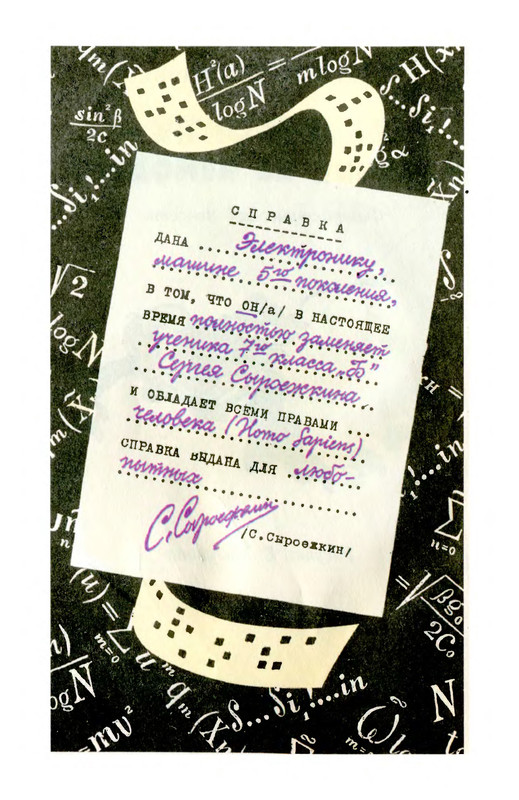 СПРАВКА
ДАНА ... Электронику,
машине 5го поколения,
В ТОМ, ЧТО ОН/а/ В НАСТОЯЩЕЕ
ВРЕМЯ полностью заменяет
ученика 7го класса „Б”
Сергея Сыроежкина
И ОБЛАДАЕТ ВСЕМИ ПРАВАМИ ...
человека (Homo Sapiens)
СПРАВКА ВЫДАНА ДЛЯ ... любо-
пытных
С. Сыроежкин
/С.Сыроежкин/